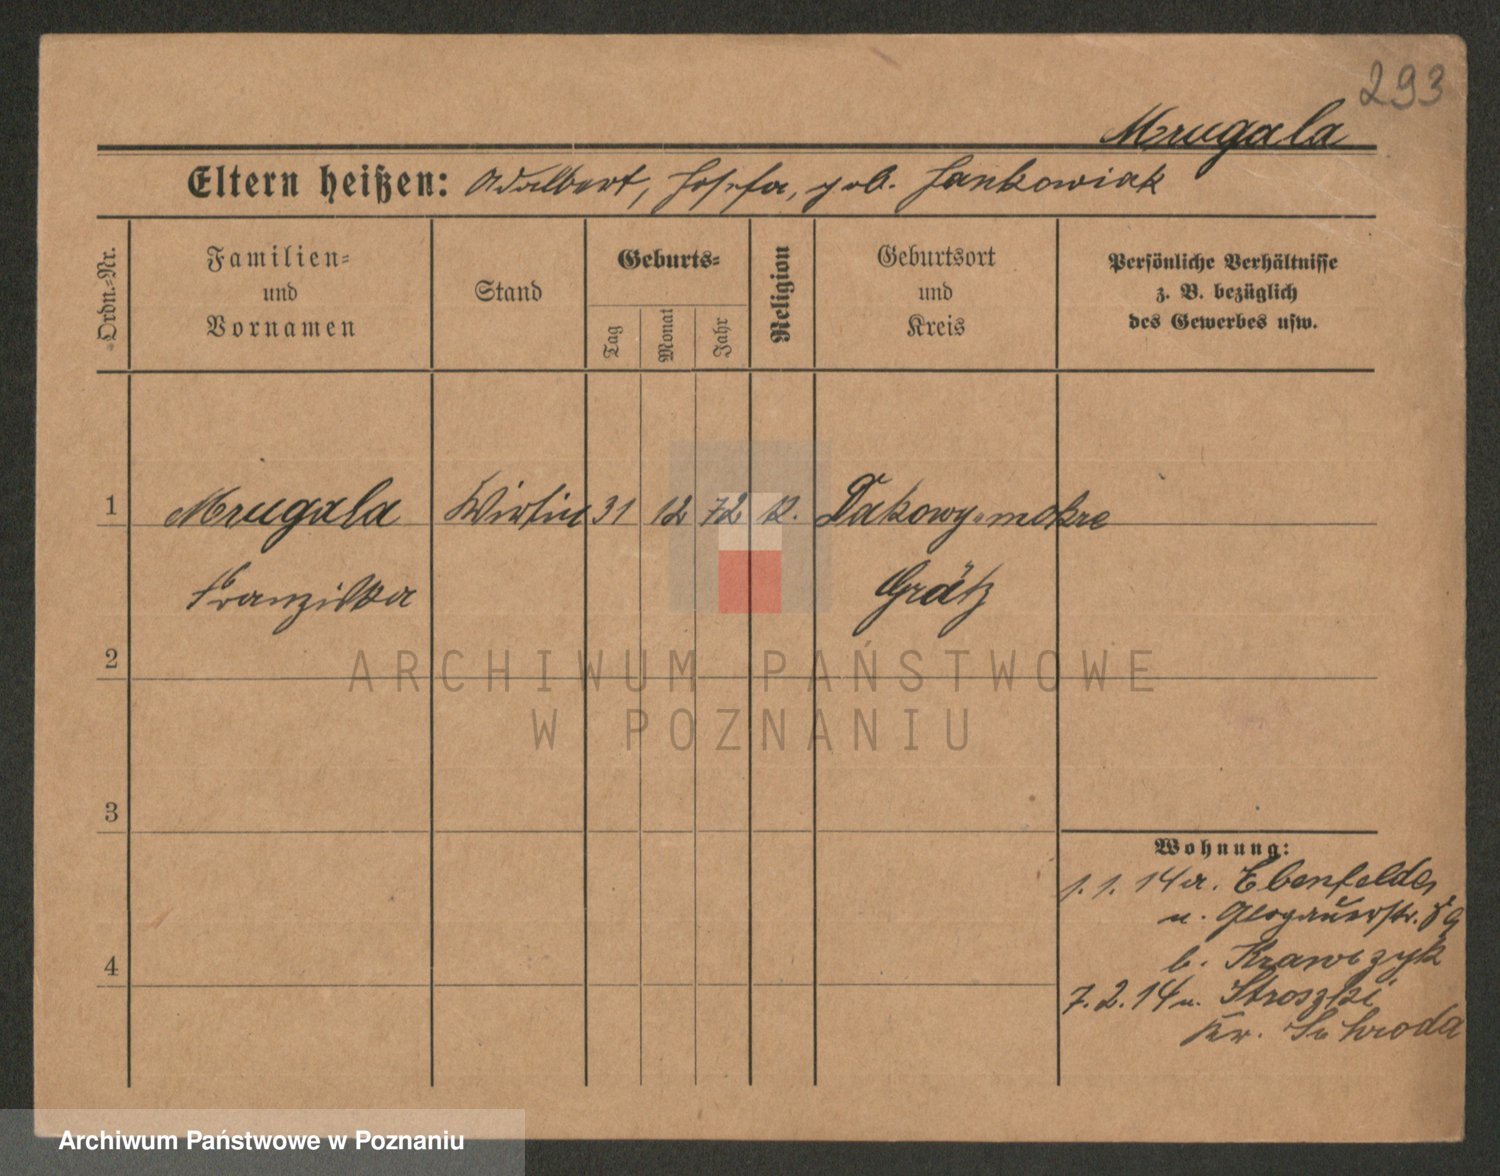 293
Mrugala
Eltern heißen: Adalbert, Josefa, geb. Jankowiak
Ordn.-Nr.
Familien-
und
Vornamen
Stand
Geburts-
Tag
Monat
Jahr
Religion
Geburtsort
und
Kreis
Persönliche Verhältnisse
z. B. bezüglich
des Gewerbes usw.
1 Mrugala Wirtin 31 12 72 k. Dakowy-mokre
Franziska Grätz
2
ARCHIWUM PAŃSTWOWE
W POZNANIU
3
Wohnung:
1. 1. 14 a. Ebenfelde,
n. Glogauerstr. 89
b. Krawczyk
4
7. 2. 14 n. Stroszki
Kr. Schroda
Archiwum Państwowe w Poznaniu